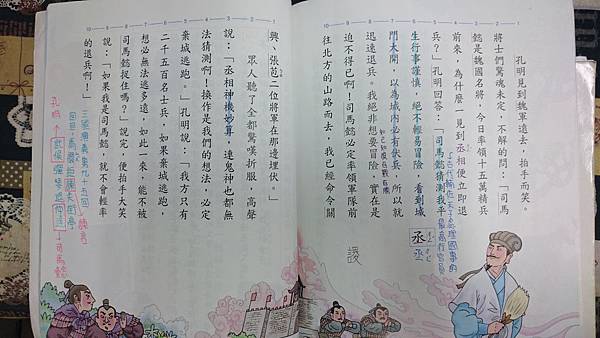 孔明見到魏軍遠去，拍手而笑。
將士們驚魂未定，不解的問：「司馬
懿是魏國名將，今日率領十五萬精兵
前來，為什麼一見到丞相便立即退
兵？」孔明回答：「司馬懿猜測我平
生行事謹慎，絕不輕易冒險，看到城
門大開，以為城內必有伏兵，所以就
迅速退兵。我絕非想要冒險，實在是
迫不得已啊！司馬懿必定率領軍隊前
往北方的山路而去，我已經命令關
丞
丞
古代輔佐天子處理國事的
最高行政官員
謖
興、張苞二位將軍在那邊埋伏。」
眾人聽了全都驚嘆折服，高聲
說：「丞相神機妙算，連鬼神也都無
法猜測啊！換作是我們的想法，必定
棄城逃跑。」孔明說：「我方只有
二千五百名士兵，如果棄城逃跑，
想必無法逃多遠，如此一來，能不被
司馬懿捉住嗎？」說完，便拍手大笑
說：「如果我是司馬懿，就不會輕率
的退兵啊！」
三國演義第九十五回
回目：馬謖拒諫失街亭
武侯彈琴退仲達
孔明
司馬懿